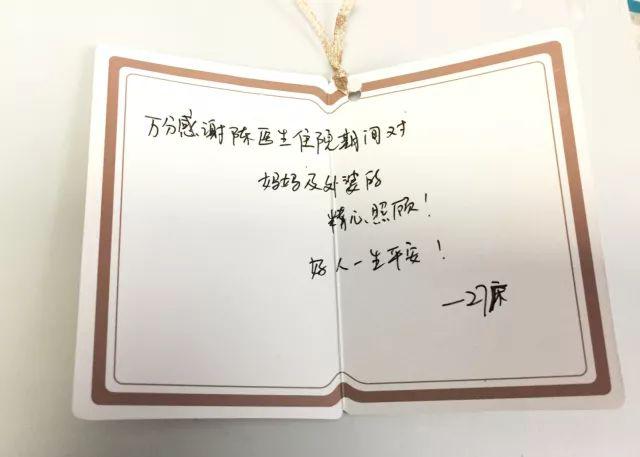 万分感谢陈医生住院期间对
妈妈及外婆的
精心照顾！
好人一生平安！
—27床